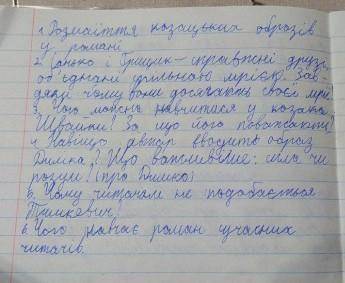 1. Розмаїття козацьких образів
у романі
2. Санько і Грицик - справжні друзі,
об'єднані спільною мрією. Зав-
дяки чому вони досягають своєї мрії
3. Чого можна навчитися у козака
Швайки? За що його поважають?
4. Навіщо автор вводить образ
Демка? Що важливіше: сила чи
розум? (про Демка)
5. Чому читачам не подобається
Тишкевич?
6. Чого навчає роман сучасних
читачів.